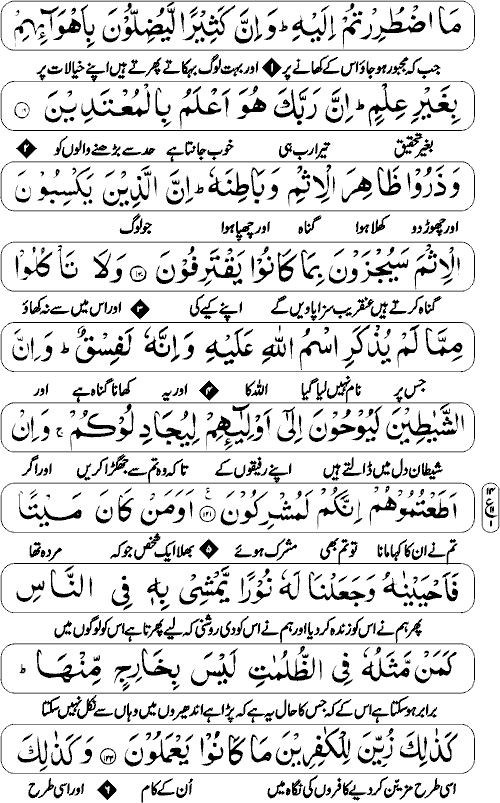 مَا اضْطُرِرْتُمْ اِلَيْهِ ؕ وَاِنَّ كَثِيْرًا لَّيُضِلُّوْنَ بِاَهْوَآئِهِمْ
جب کہ مجبور ہو جاؤ اس کے کھانے پر ۱ اور بہت لوگ بہکاتے پھرتے ہیں اپنے خیالات پر
بِغَيْرِ عِلْمٍ ؕ اِنَّ رَبَّكَ هُوَ اَعْلَمُ بِالْمُعْتَدِيْنَ
بغیر تحقیق تیرا رب ہی خوب جانتا ہے حد سے بڑھنے والوں کو ۲
وَذَرُوْا ظَاهِرَ الْاِثْمِ وَبَاطِنَهٗ ؕ اِنَّ الَّذِيْنَ يَكْسِبُوْنَ
اور چھوڑ دو کھلا ہوا گناہ اور چھپا ہوا جو لوگ
الْاِثْمَ سَيُجْزَوْنَ بِمَا كَانُوْا يَقْتَرِفُوْنَ ۱۲۰ وَلَا تَاْكُلُوْا
گناہ کرتے ہیں عنقریب سزا پاویں گے اپنے کیے کی ۳ اور اس میں سے نہ کھاؤ
مِمَّا لَمْ يُذْكَرِ اسْمُ اللّٰهِ عَلَيْهِ وَاِنَّهٗ لَفِسْقٌ ؕ وَاِنَّ
جس پر نام نہیں لیا گیا اللہ کا ۴ اور یہ کھانا گناہ ہے اور
الشَّيٰطِيْنَ لَيُوْحُوْنَ اِلٰٓى اَوْلِيٰٓـئِهِمْ لِيُجَادِلُوْكُمْ ۚ وَاِنْ
شیطان دل میں ڈالتے ہیں اپنے رفیقوں کے تاکہ وہ تم سے جھگڑا کریں اور اگر
اَطَعْتُمُوْهُمْ اِنَّكُمْ لَمُشْرِكُوْنَ ۱۲۱ اَوَمَنْ كَانَ مَيْتًا
تم نے ان کا کہا مانا تو تم بھی مشرک ہوئے ۵ بھلا ایک شخص جو کہ مردہ تھا
فَاَحْيَيْنٰهُ وَجَعَلْنَا لَهٗ نُوْرًا يَّمْشِيْ بِهٖ فِى النَّاسِ
پھر ہم نے اس کو زندہ کر دیا اور ہم نے اس کو دی روشنی کہ لیے پھرتا ہے اس کو لوگوں میں
كَمَنْ مَّثَلُهٗ فِى الظُّلُمٰتِ لَيْسَ بِخَارِجٍ مِّنْهَا ؕ
برابر ہو سکتا ہے اس کے کہ جس کا حال یہ ہے کہ پڑا ہے اندھیروں میں وہاں سے نکل نہیں سکتا
كَذٰلِكَ زُيِّنَ لِلْكٰفِرِيْنَ مَا كَانُوْا يَعْمَلُوْنَ ۱۲۲ وَكَذٰلِكَ
اسی طرح مزین کر دیے کافروں کی نگاہ میں اُن کے کام ۶ اور اسی طرح